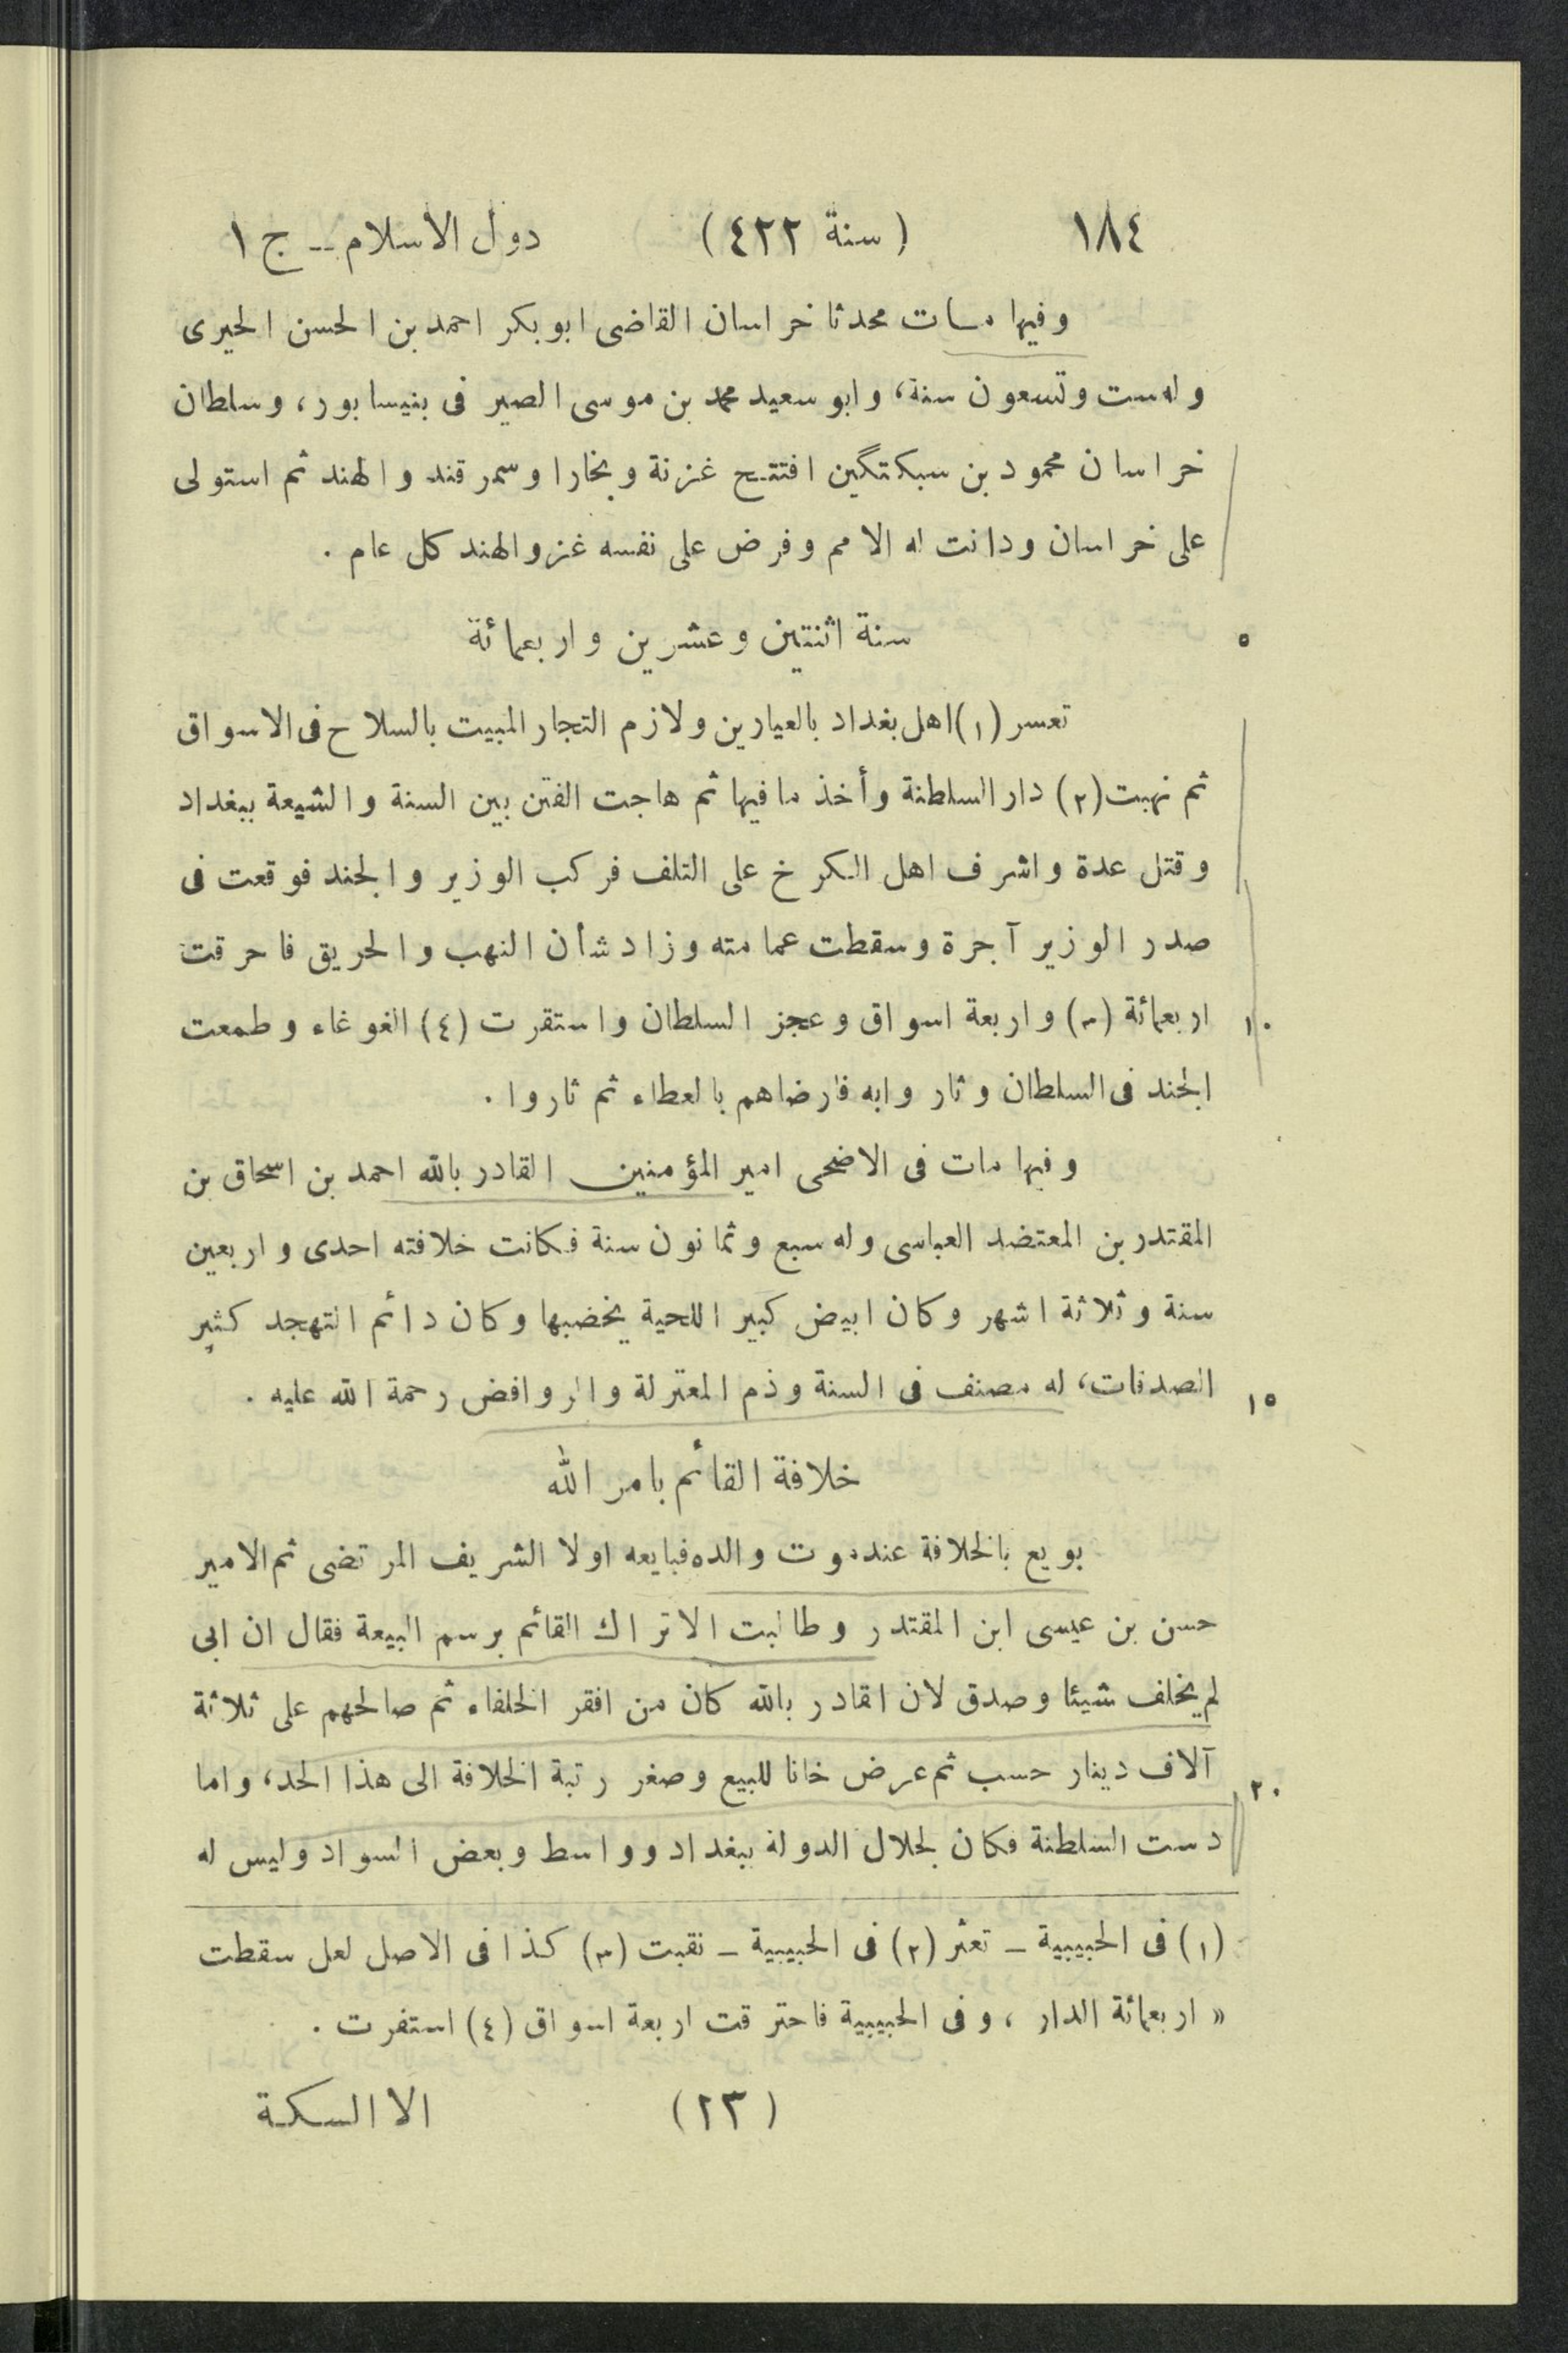 ١٨٤ (سنة ٤٢٢) دول الاسلام -- ج ١
وفيها مات محدثا خراسان القاضى ابو بكر احمد بن الحسن الحيرى
وله ست وتسعون سنة، وابو سعيد محمد بن موسى الصير فى بنيسابور، وسلطان
خراسان محمود بن سبكتگين افتتح غزنة وبخارا وسمرقند والهند ثم استولى
على خراسان ودانت له الامم وفرض على نفسه غزو الهند كل عام .
٥ سنة اثنتين وعشرين واربعمائة
تعسر (١) اهل بغداد بالعيارين ولازم التجار المبيت بالسلاح فى الاسواق
ثم نهبت (٢) دار السلطنة وأخذ ما فيها ثم هاجت الفتن بين السنة والشيعة ببغداد
وقتل عدة واشرف اهل الكرخ على التلف فركب الوزير والجند فوقعت فى
صدر الوزير آجرة وسقطت عمامته وزاد شأن النهب والحريق فاحرقت
١٠ اربعمائة (٣) واربعة اسواق وعجز السلطان واستقرت (٤) الغوغاء وطمعت
الجند فى السلطان وثاروا به فارضاهم بالعطاء ثم ثاروا .
وفيها مات فى الاضحى امير المؤمنين القادر بالله احمد بن اسحاق بن
المقتدر بن المعتضد العباسى وله سبع وثمانون سنة فكانت خلافته احدى واربعين
سنة وثلاثة اشهر وكان ابيض كبير اللحية يخضبها وكان دائم التهجد كثير
١٥ الصدقات، له مصنف فى السنة وذم المعتزلة والروافض رحمة الله عليه .
خلافة القائم بامر الله
بويع بالخلافة عند موت والده فبايعه اولا الشريف المرتضى ثم الامير
حسن بن عيسى ابن المقتدر وطالبت الاتراك القائم برسم البيعة فقال ان ابى
لم يخلف شيئا وصدق لان القادر بالله كان من افقر الخلفاء ثم صالحهم على ثلاثة
٢٠ آلاف دينار حسب ثم عرض خانا للبيع وصغر رتبة الخلافة الى هذا الحد، واما
دست السلطنة فكان لجلال الدولة ببغداد وواسط وبعض السواد وليس له
(١) فى الحبيبية - تعثر (٢) فى الحبيبية - نقبت (٣) كذا فى الاصل لعل سقطت
« اربعمائة الدار ، وفى الحبيبية فاحترقت اربعة اسواق (٤) استفرت .
(٢٣) الا السكة